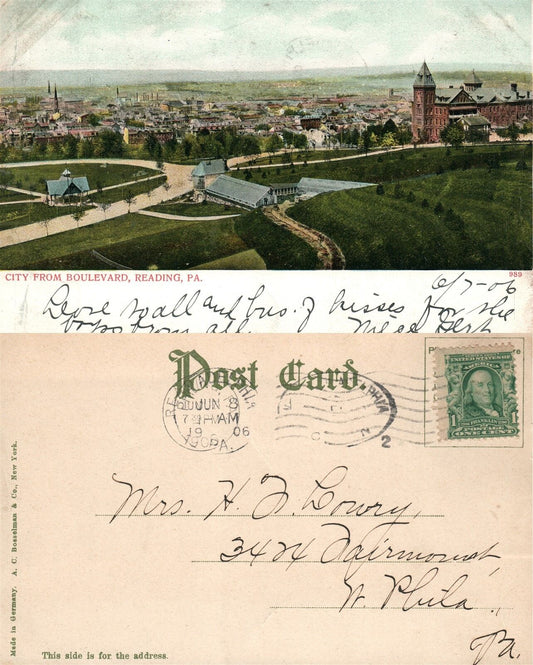 CITY FROM BOULEVARD, READING, PA.
989
6/7-06
Love to all and bus. of kisses for the
boys from all.
Post Card.
JUN 8
7 AM
1906
PA.
PHIA
2
UNITED STATES
POSTAGE
1 ONE CENT 1
Mrs. H. F. Lowry,
3424 Fairmount,
W Phila.,
Pa.
Made in Germany. A. C. Bosselman & Co., New York.
This side is for the address.